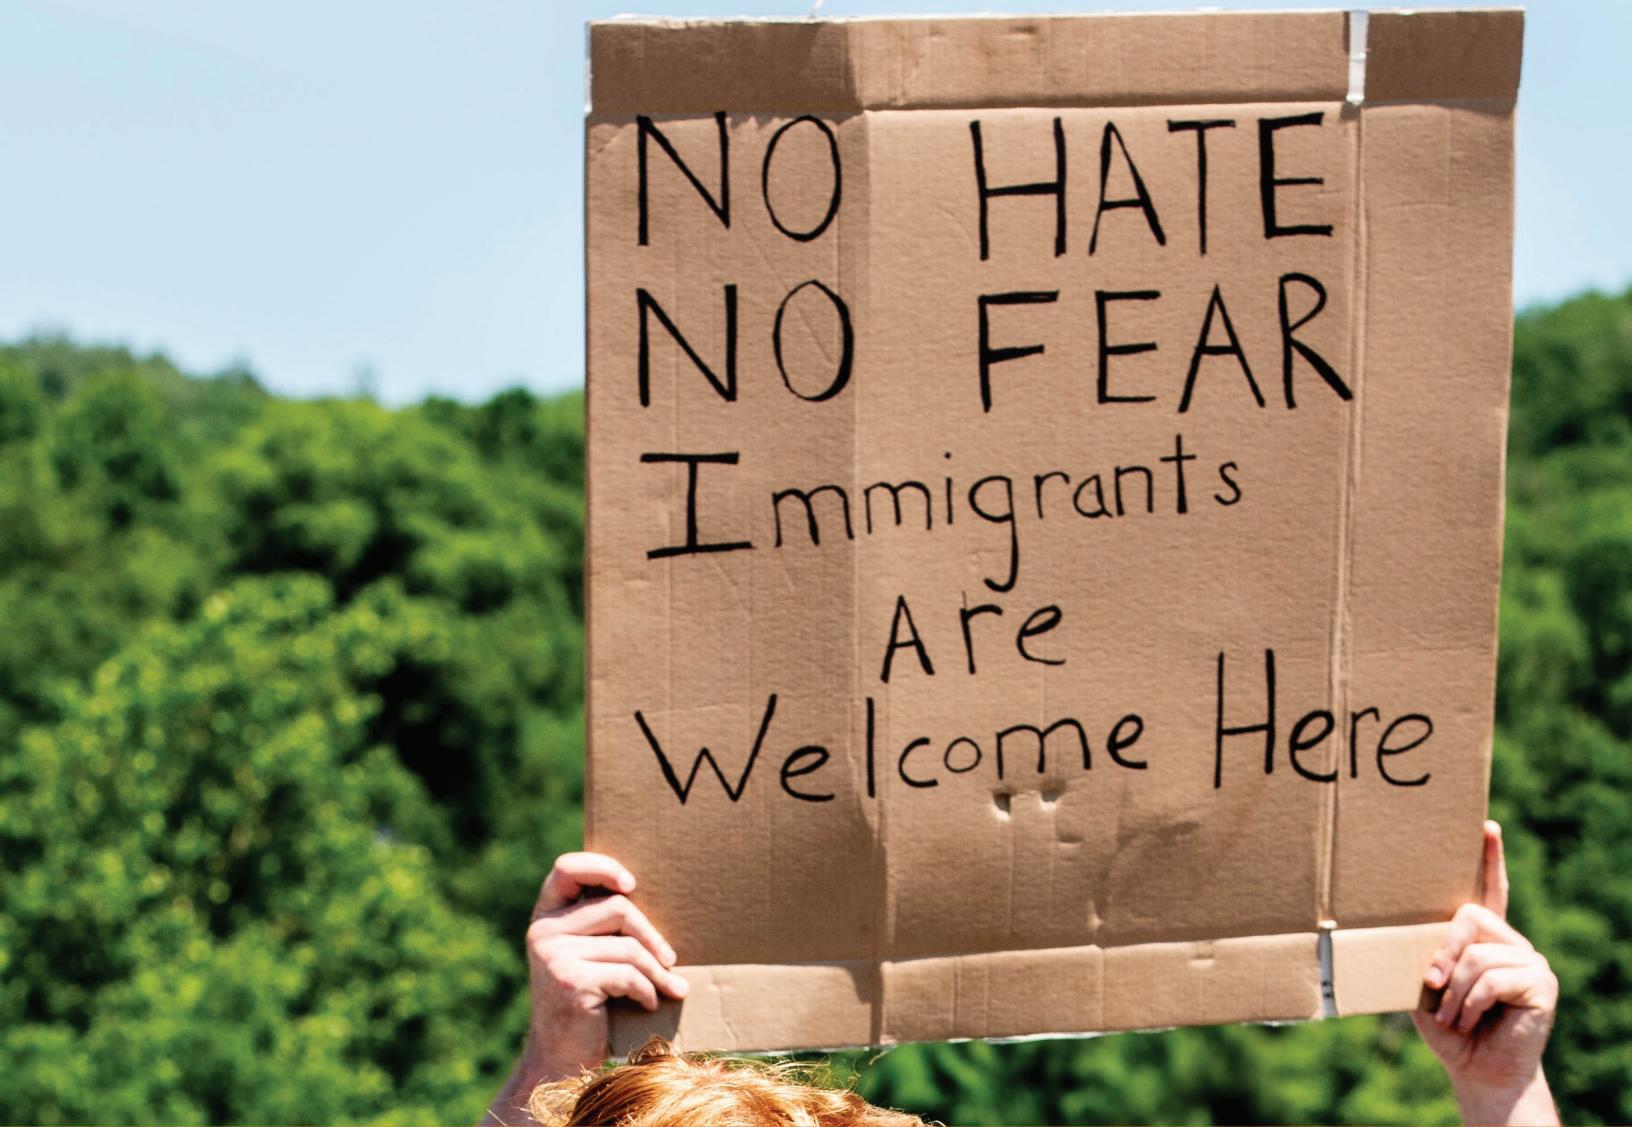 NO HATE
NO FEAR
Immigrants
Are
Welcome Here